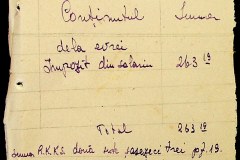 Conținutul Suma
de la evrei
Impozit din salariu 263 19
Total 263 19
Suma R.K.K.S. două sute șasezeci trei pf. 19.